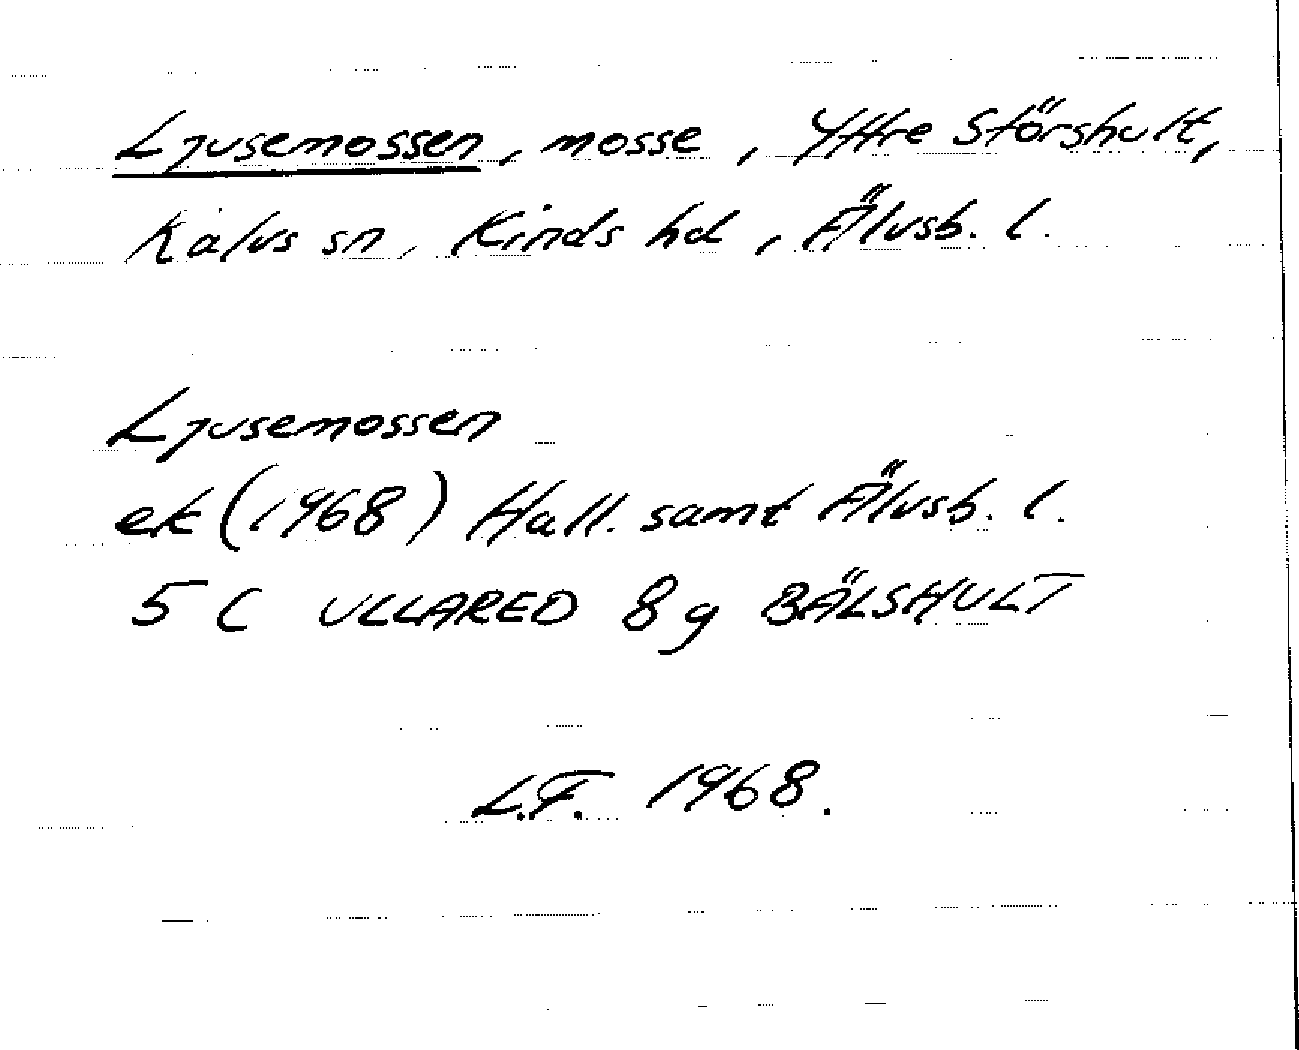 Ljusemossen, mosse, Yttre Störshult,
Kalvs sn, Kinds hd, Älvsb. l.
Ljusemossen
ek (1968) Hall. samt Älvsb. l.
5 C ULLARED 8 g BÄLSHULT
L.F. 1968.